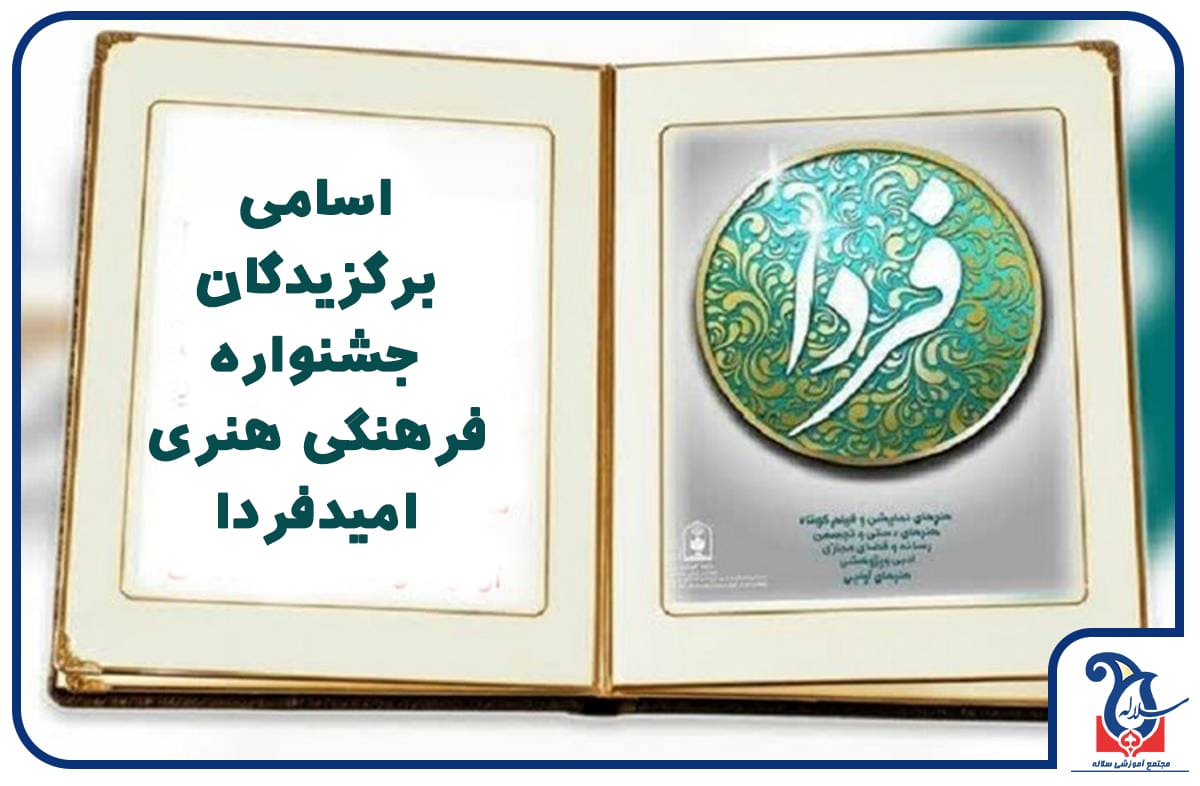 اسامی
برگزیدگان
جشنواره
فرهنگی هنری
امیدفردا
فردا
هنرهای نمایشی و فیلم کوتاه
هنرهای دستی و تجسمی
رسانه و فضای مجازی
ادبی و پژوهشی
هنرهای آوایی
سلاله
مجتمع آموزشی سلاله